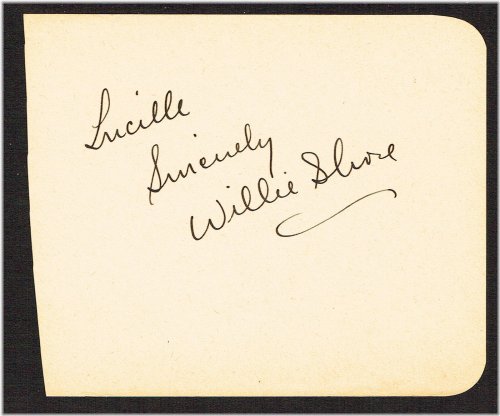 Lucille
Sincerely
Willie Shore